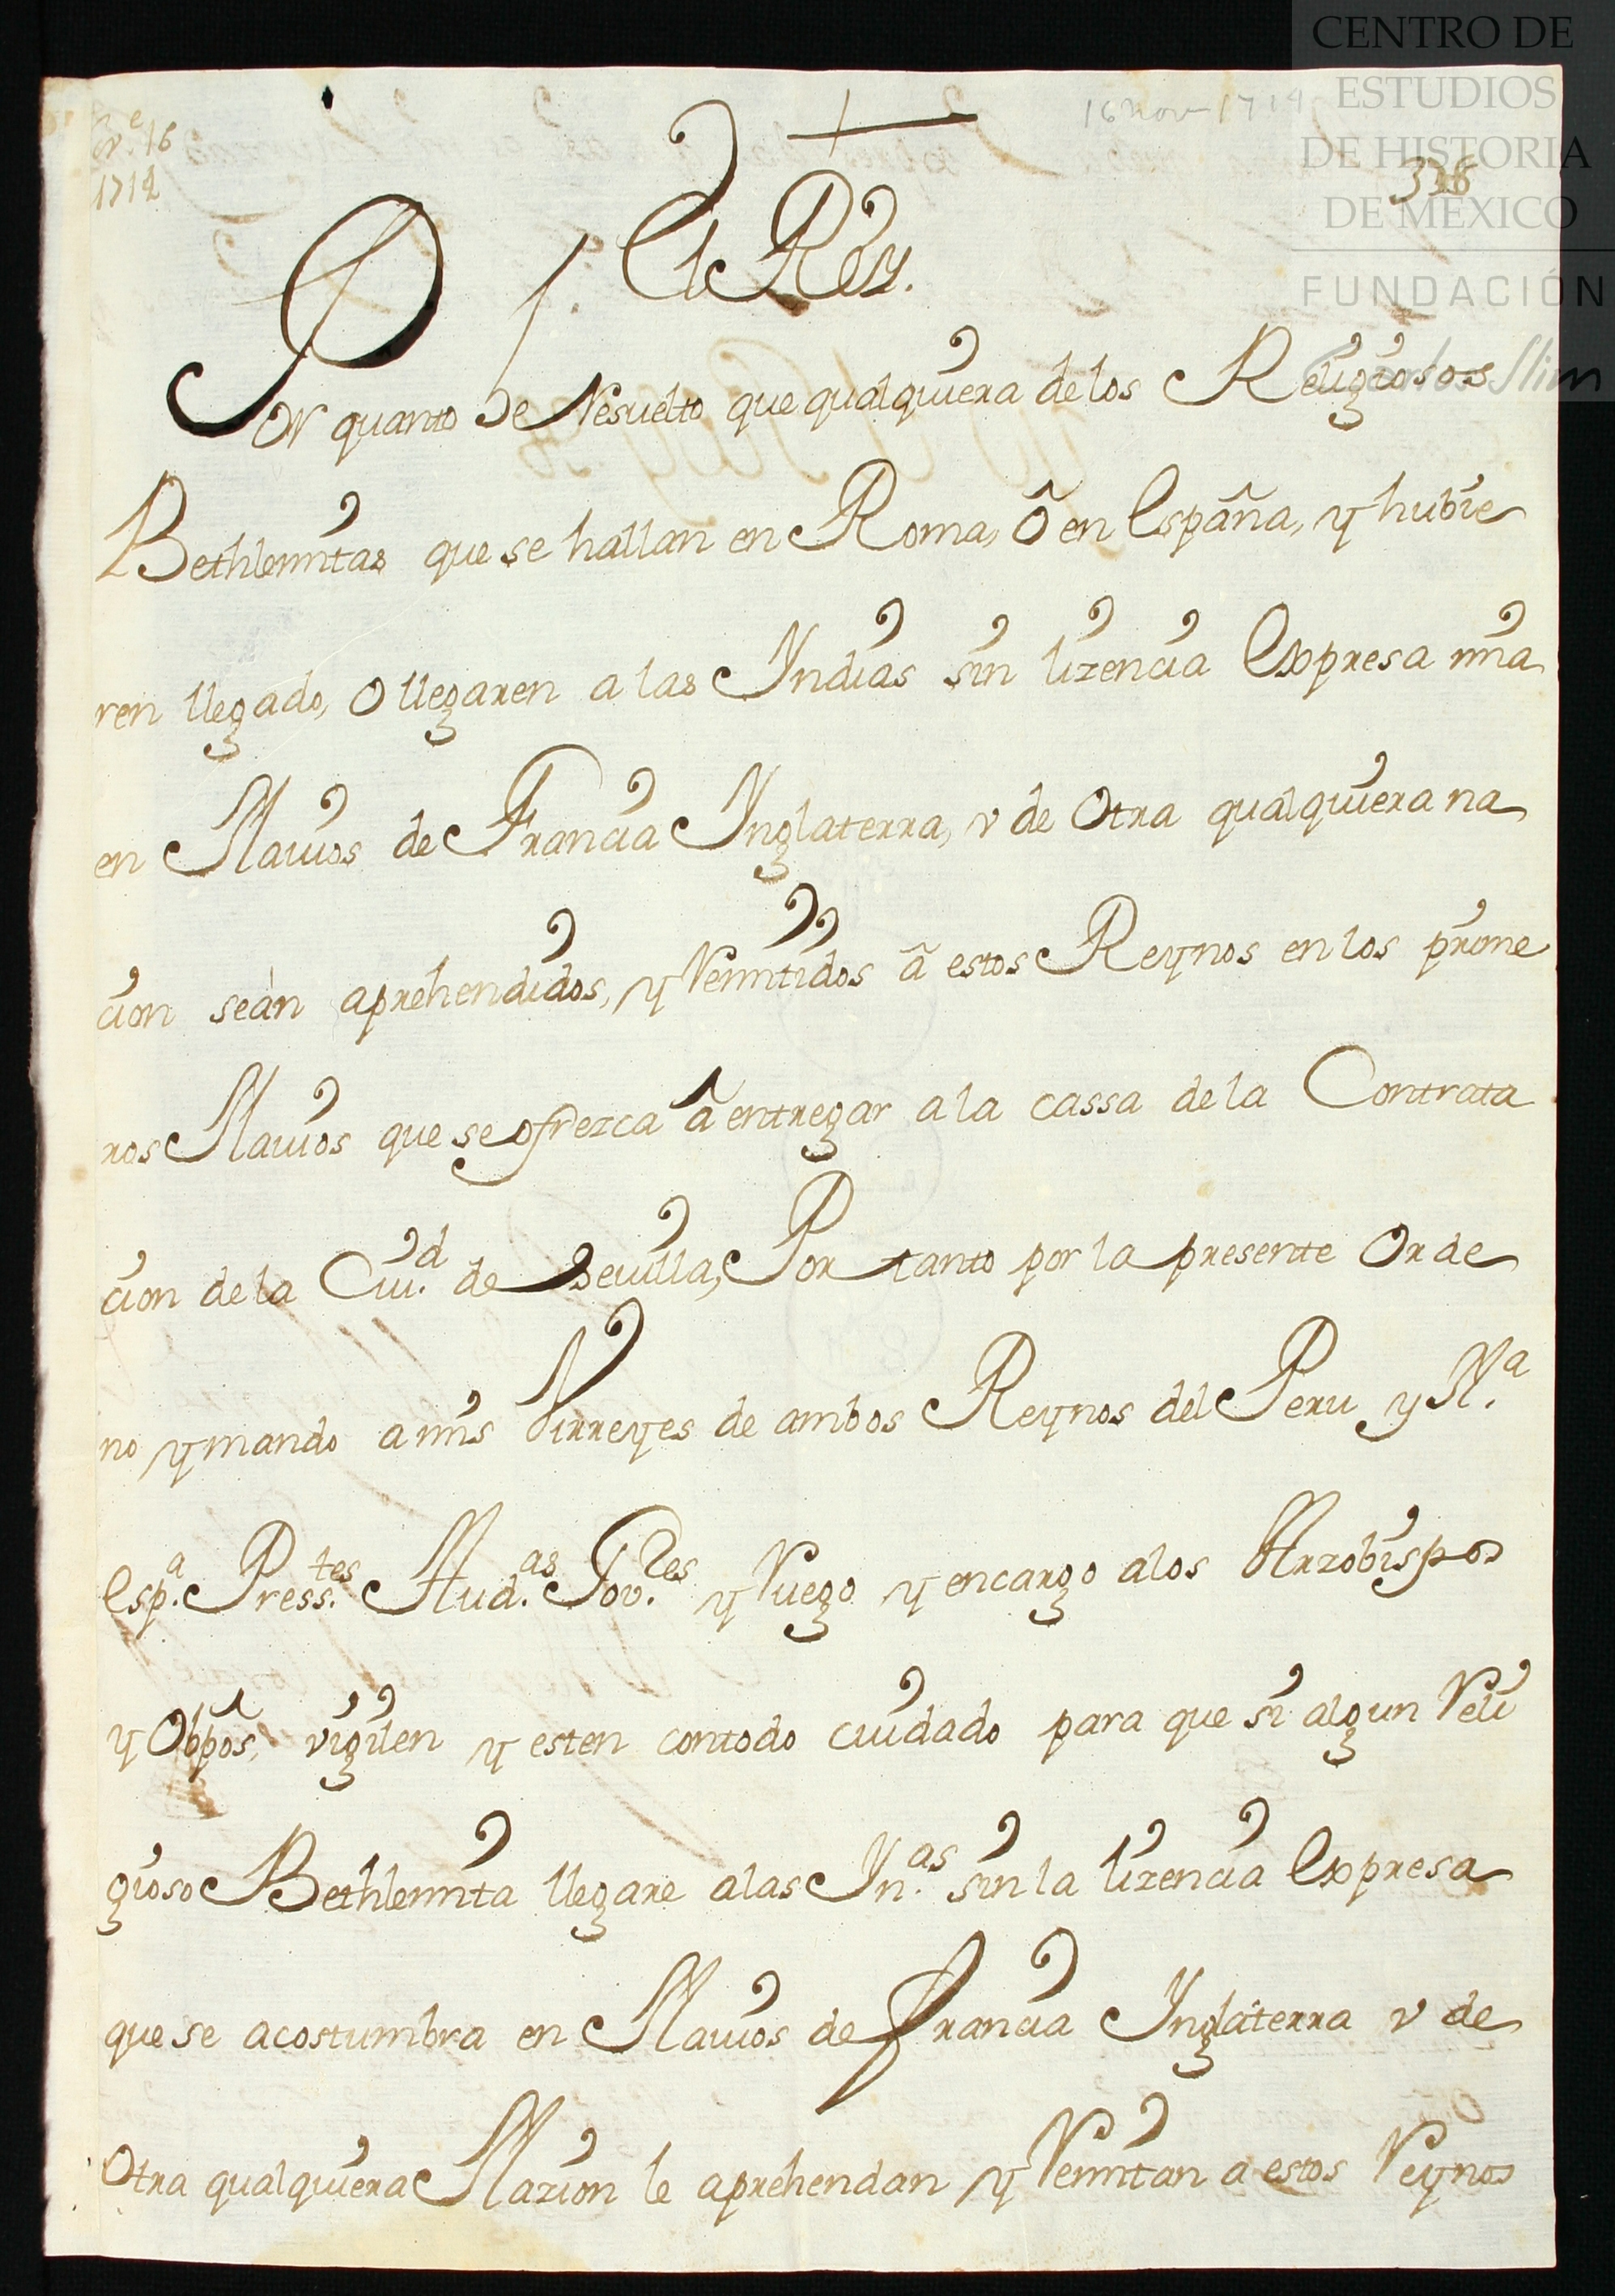 CENTRO DE
ESTUDIOS
DE HISTORIA
DE MÉXICO
FUNDACIÓN
Carlos Slim
16 nov 1714
16
1714
El Rey.
Por quanto he Resuelto que qualquiera de los Religiosos
Bethlemitas que se hallan en Roma, ô en España, y hubie
ren llegado, o llegaren a las Yndias sin lizencia Expresa mia
en Navios de Francia Ynglaterra, v de Otra qualquiera na
cion seàn aprehendidos, y Remitidos â estos Reynos en los prime
ros Navios que se ofrezca â entregar a la cassa de la Contrata
cion de la Ciu.d de Sevilla, Por tanto por la presente Orde
no y mando a mis Virreyes de ambos Reynos del Peru y N.a
Esp.a Press.tes Aud.as Gov.res y Ruego y encargo a los Arzobispos
y Obpôs, vigilen y esten contodo cuidado para que si algun Reli
gioso Bethlemita llegare a las Yn.as sin la lizencia Expresa
que se acostumbra en Navios de Francia Ynglaterra v de
Otra qualquiera Nazion le aprehendan y Remitan a estos Reynos